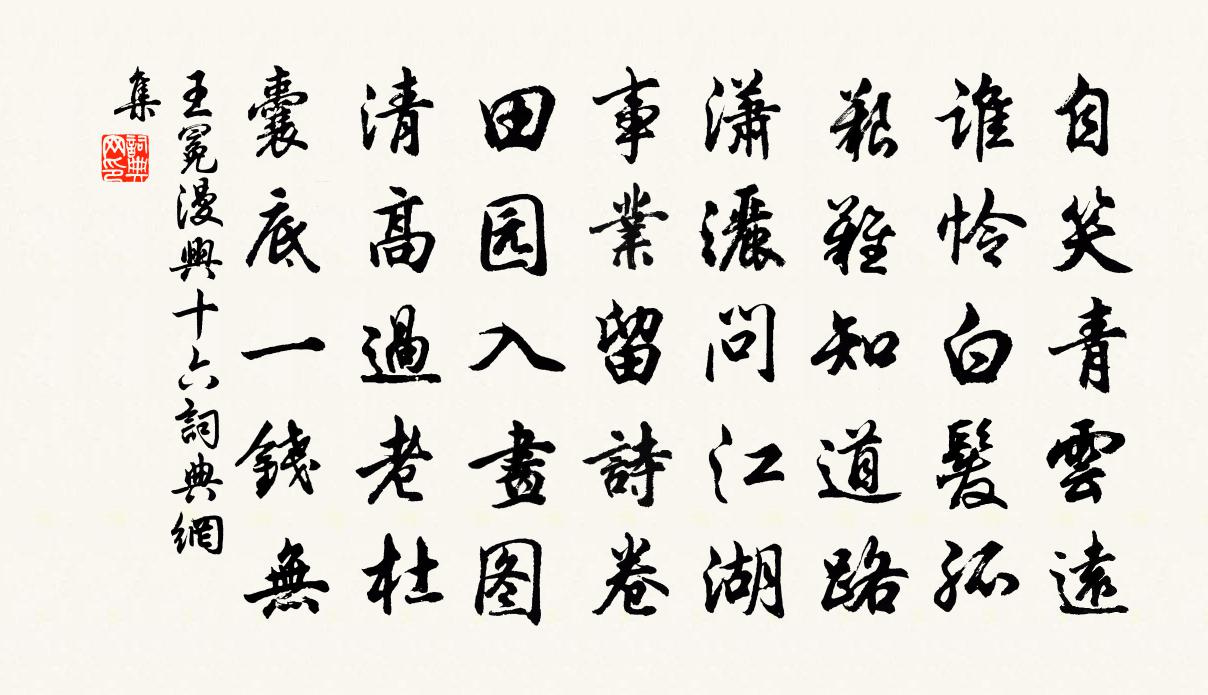 自笑青雲遠
誰怜白髮孤
艱難知道路
瀟灑問江湖
事業留詩卷
田园入畫图
清高過老杜
囊底一錢無
王冕漫興十六詞典網
集
詞典
网印